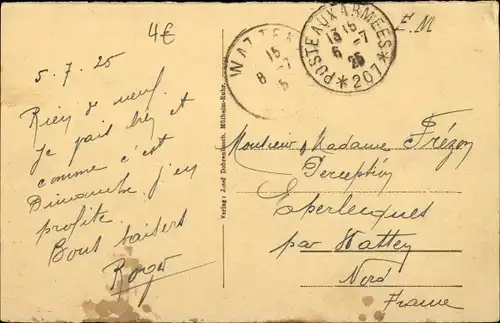 4€
F.M
5.7.25
Rien de neuf.
Je vais bien et
comme c'est
Dimanche j'en
profite.
Bons baisers
Roger
Verlag: Josef Mülheim-Ruhr.
WATTEN
15
8 -7
POSTE AUX ARMÉES
13 15
6 -7
25
*207*
Monsieur & Madame Frézon
Perception
Eperlecques
par Watten
Nord
France